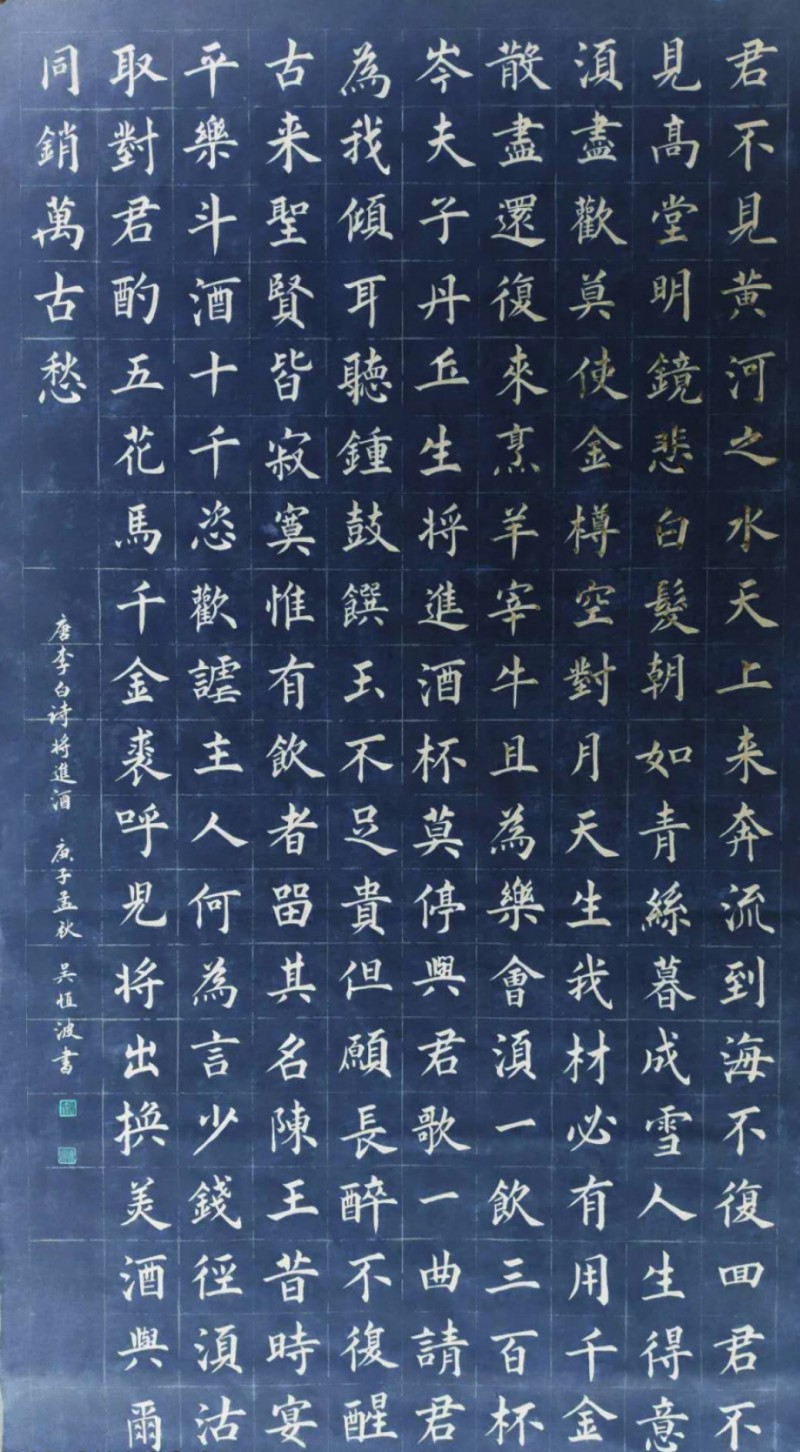 君不見黄河之水天上来奔流到海不復囬君不
見高堂明鏡悲白髮朝如青絲暮成雪人生得意
湏盡歡莫使金樽空對月天生我材必有用千金
散盡還復來烹羊宰牛且為樂會湏一飲三百杯
岑夫子丹丘生将進酒杯莫停與君歌一曲請君
為我傾耳聽鍾鼓饌玉不足貴但願長醉不復醒
古来聖賢皆寂寞惟有飲者留其名陳王昔時宴
平樂斗酒十千恣歡謔主人何為言少錢徑湏沽
取對君酌五花馬千金裘呼児将出换美酒與爾
同銷萬古愁
唐李白诗将進酒 庚子孟秋 吴恒波書